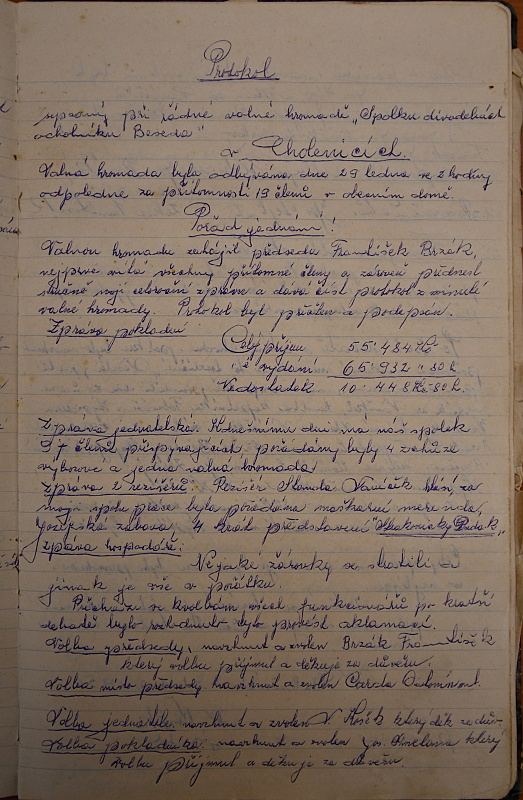 Protokol
sepsaný při řádné valné hromadě „Spolku divadelních
ochotníků Beseda"
v Chdenicích.
Valná hromada byla odbývána dne 29 ledna ve 2 hodiny
odpoledne za přítomnosti 19 členů v obecním domě.
Pořad jednání!
Valnou hromadu zahájil předseda František Brzák,
nejprve vítá všechny přítomné členy a zároveň přednesl
stručně svoji celoroční zprávu a dává číst protokol z minulé
valné hromady. Protokol byl přečten a podepsán.
Zpráva pokladní
Celý příjem 55.484 Kč
vydání 65.932 " 80 h
Nedostatek 10.448 Kč 80 h.
Zpráva jednatelská. K dnešnímu dni má náš spolek
97 členů přispývajících pořádány byly 4 schůze
výborové a jedná valná hromada
Zpráva z režisérů. Režisér Standa Vaníček hlásí, za
svoji spolu práce byla pořádána maškarní merenda,
Josefská zábava 4 krát představení "Strakonický Dudák„
Zpráva hospodáře.
Nějaké žárovky se ztratili a
jinak je vše v pořádku.
Přechází se k volbám všech funkcionářů po kratší
debatě bylo rozhodnuto, bylo provést aklamací.
Volba předsedy, navrhnut a zvolen Brzák František
který volbu přijmul a děkuje za důvěru.
Volba místo předsedy navrhnut a zvolen Čarda
Volba jednatele navrhnut a zvolen V. Košek který děk. za dův.
Volba pokladníka. navrhnut a zvolen Jos. Smetana který
volbu přijmul a děkuje za důvěru.